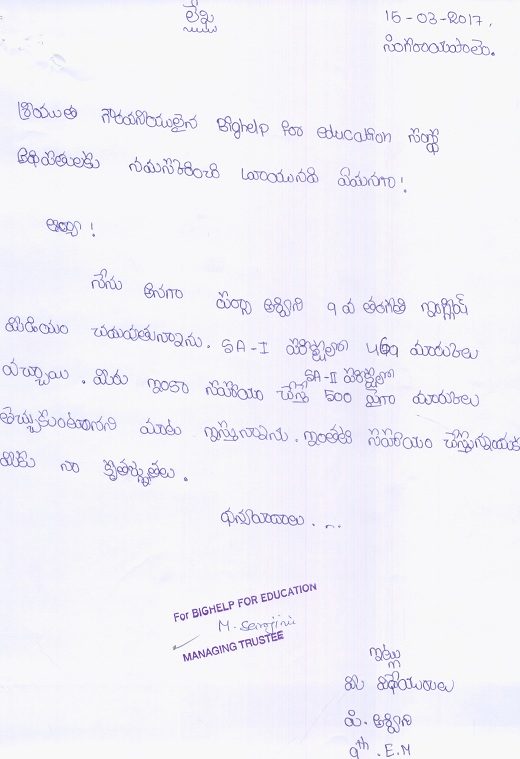 లేఖ
15-03-2017,
సింగరాయపాలెం.
శ్రీయుత గౌరవనీయులైన Bighelp for education సంస్థ
అధిపతులకు నమస్కరించి వ్రాయునది ఏమనగా!
అయ్యా!
నేను అనగా అశ్విని 9 వ తరగతి ఇంగ్లీష్
మీడియం చదువుతున్నాను. SA-I పరీక్షల్లో 469 మార్కులు
వచ్చాయి. మీరు ఇంకా సహాయం చేస్తే SA-II పరీక్షల్లో 500 పైగా మార్కులు
తెచ్చుకుంటానని మాట ఇస్తున్నాను. ఇంతటి సహాయం చేస్తున్నందుకు
మీకు నా కృతజ్ఞతలు.
ధన్యవాదాలు....
For BIGHELP FOR EDUCATION
M.
MANAGING TRUSTEE
ఇట్లు
మీ విధేయురాలు
పి. అశ్విని
9th. E.M